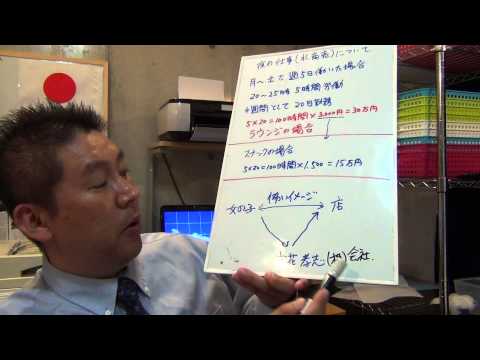 夜の仕事(水商売)について
月〜土で週5日働いた場合
20〜25時 5時間労働
4週間として 20日勤務
5×20=100時間×3,000円=30万円
ラウンジの場合
スナックの場合
5×20=100時間×1,500=15万円
怖いイメージ
女の子 店
立花孝志(株)会社